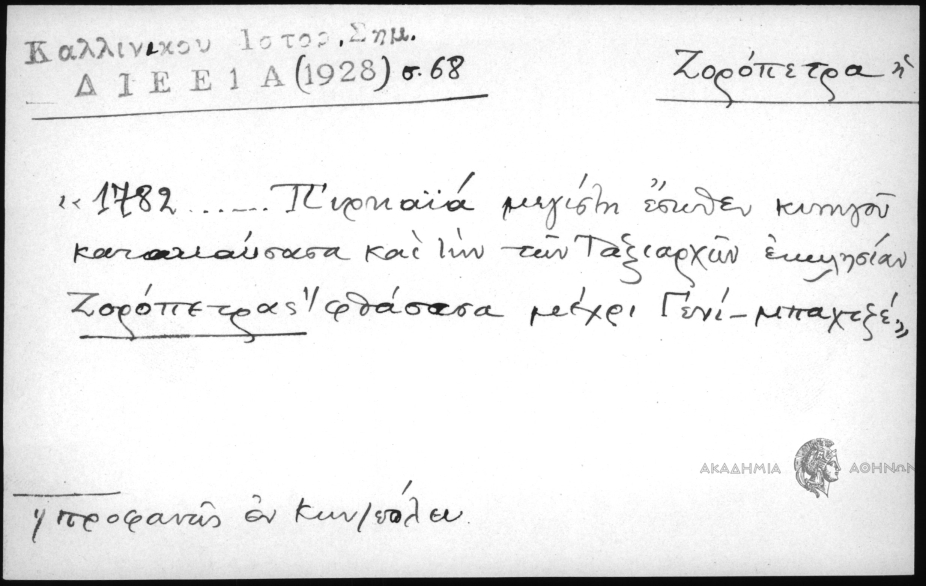 Καλλινικου Ιστορ. Σημ.
ΔΙΕΕ 1Α (1928) σ. 68
Ζορόπετρα ἡ
«1782 ...... Πυρκαϊά μεγίστη ἔσωθεν κυνηγοῦ
κατακαύσασα καὶ τὴν τῶν Ταξιαρχῶν ἐκκλησίαν
Ζορόπετρας 1/ φθάσασα μέχρι Γενί-μπαχτζέ»
ΑΚΑΔΗΜΙΑ ΑΘΗΝΩΝ
1/ προφανῶς ἐν Κων/πόλει